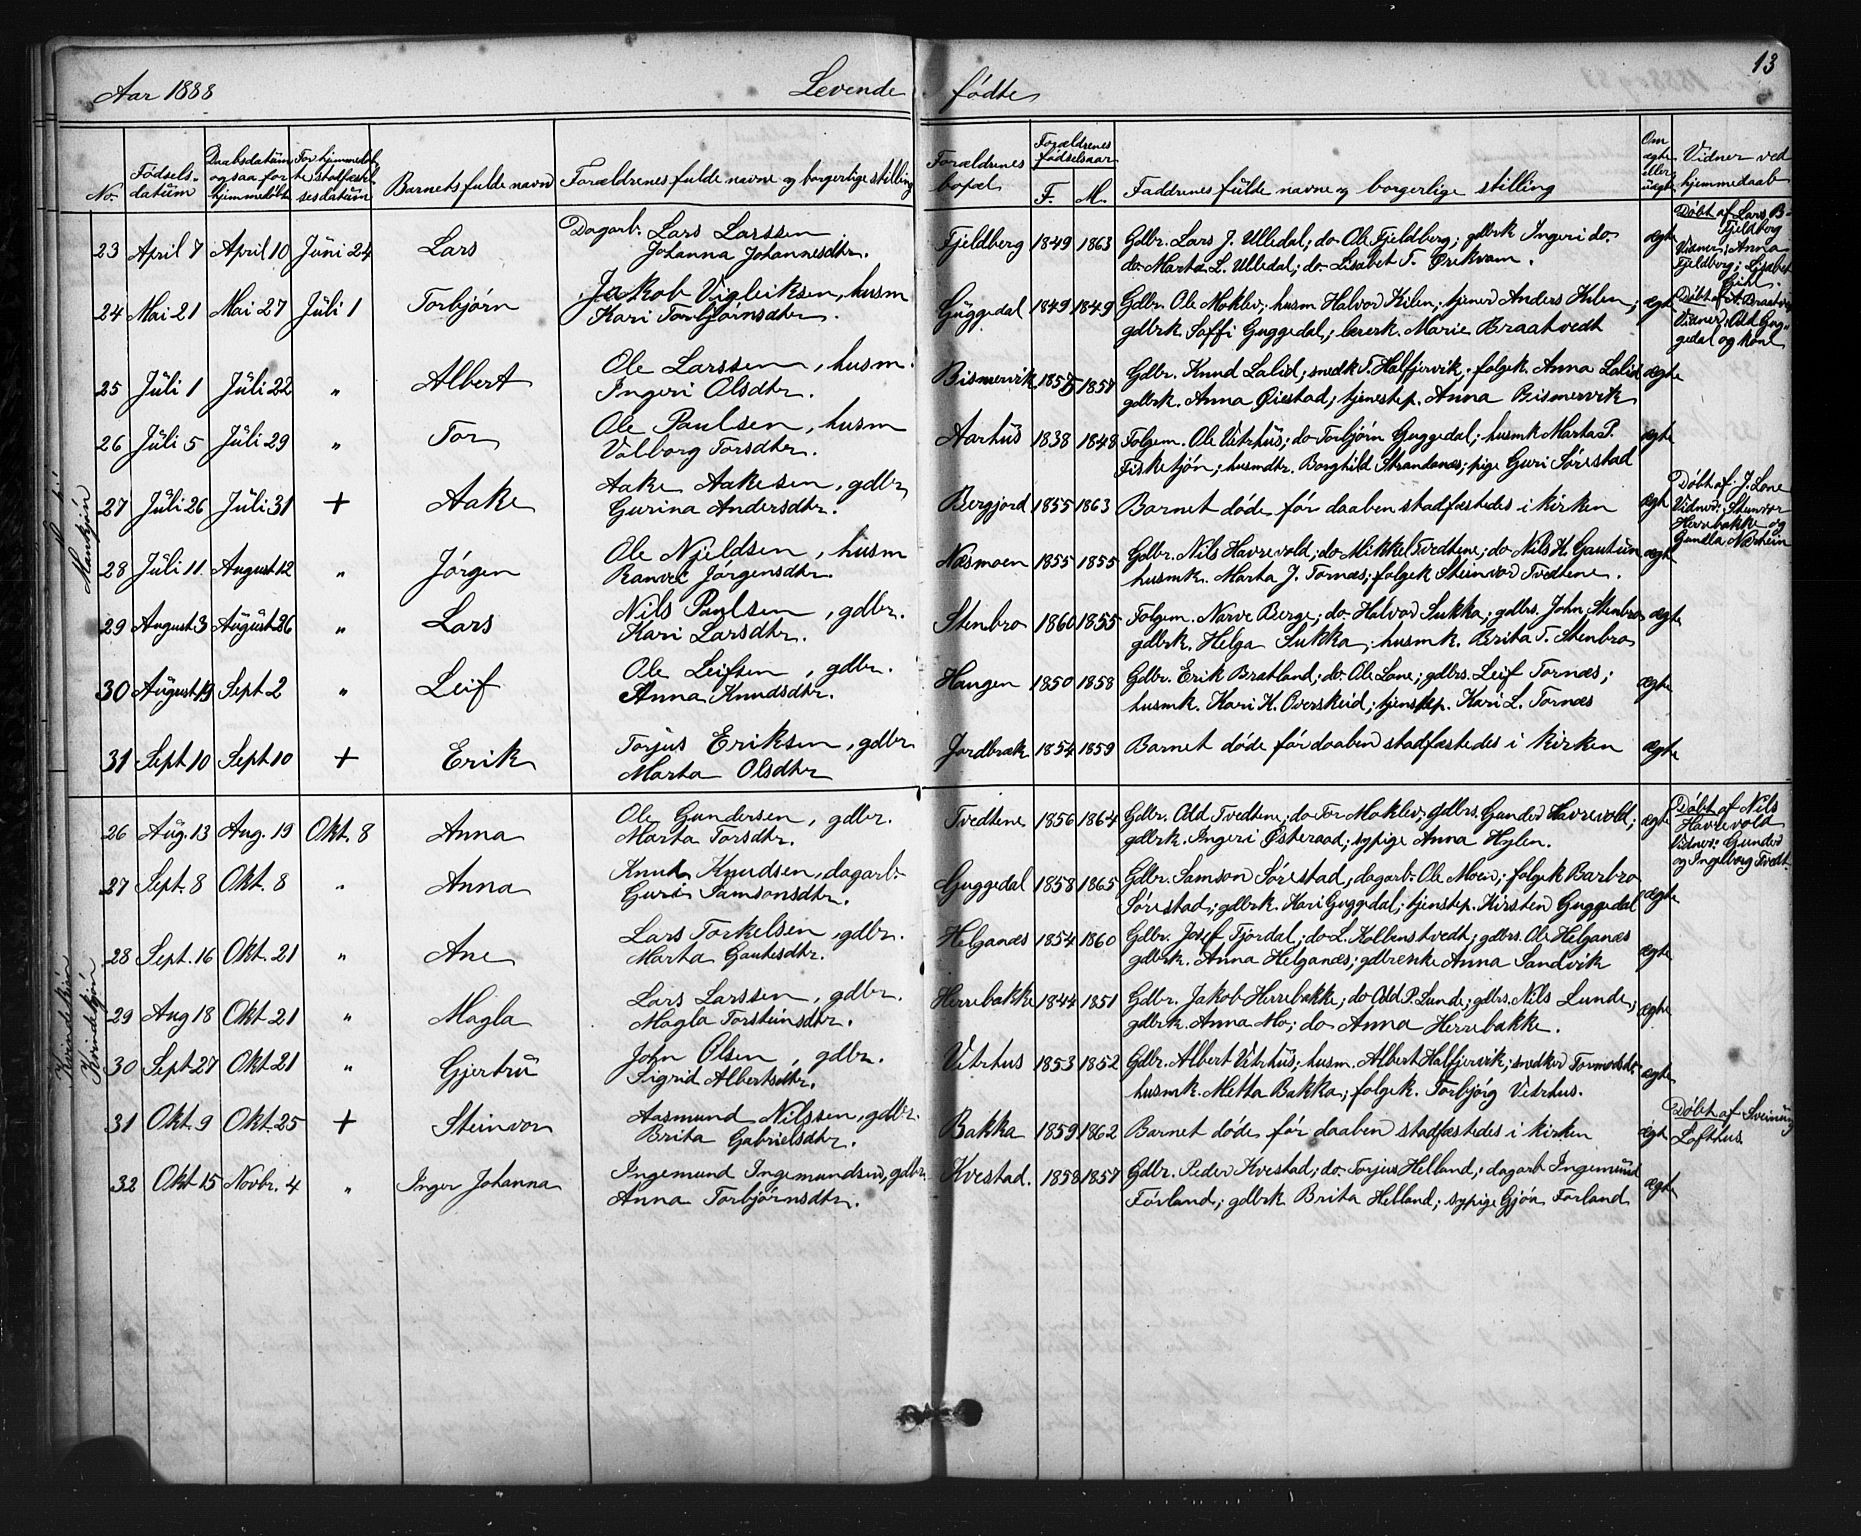 13
Aar 1888 Levende fødte
No. Fødsels-datum Daabsdatum ogsaa for hjemmedøbte For hjemmedøbte stadfæstelsesdatum Barnets fulde navn Forældrenes fulde navne og borgerlige stilling Forældrenes bopæl Forældrenes fødselsaar F. M. Faddrenes fulde navne og borgerlige stilling Om ægte eller uægte Vidner ved hjemmedaab
Mankjøn
23 April 7 April 10 Juni 24 Lars Dagarb. Lars Larssen Fjeldberg 1849 1863 Gdbr. Lars J. Ulledal; do Ole Fjeldberg; gdbrk Ingeri do. ægte Døbt af Lars B. Fjeldberg
Johanna Johannesdtr. do Marta L. Ulledal; do Lisabet T. Ørekvam. Vidner: Anna Fjeldberg; Lisabet
24 Mai 21 Mai 27 Juli 1 Torbjørn Jakob Vigleiksen, husm Guggedal 1849 1849 Gdbr. Ole Moklev; husm Halvor Kilen; tjener Anders Kilen; ægte Døbt af A. Braatvedt
Kari Torbjørnsdtr. gdbrk Saffi Guggedal; lærerk. Marie Braatvedt Vidner: Odd Guggedal og kone
25 Juli 1 Juli 22 " Albert Ole Larssen, husm. Bismervik 1857 Gdbr. Knud Lalid; snedk T. Halfjervik; folgek. Anna Lalid ægte
Ingeri Olsdtr. gdbrk. Anna Øiestad; tjenestep. Anna Bismervik
26 Juli 5 Juli 29 " Tor Ole Paulsen, husm Aarhus 1838 1848 Folgem. Ole Vetrhus; do Torbjørn Guggedal; husmk Marta P. ægte
Valborg Torsdtr. Fisketjøn; husmdtr. Borghild Strandenes; pige Guri Sørestad
27 Juli 26 Juli 31 + Aake Aake Aakesen, gdbr Bergjord 1855 1863 Barnet døde før daaben stadfæstedes i kirken ægte Døbt af J. Lone
Gurina Andersdtr. Vidner: Steinvor Herrebakke og Gunila
28 Juli 11 August 12 " Jørgen Ole Njeldsen, husm Næsmoen 1855 1855 Gdbr. Nils Havrevold; do Mikkel Tvedtene; do Nils H. Gautun ægte
Ranvei Jørgensdtr. husmk. Marta J. Tornæs; folgek Steinvor Tvedtene.
29 August 3 August 26 " Lars Nils Paulsen, gdbr. Stenbro 1860 1855 Folgem. Narve Berge; do Halvor Sukka; gdbrs. John Stenbro ægte
Kari Larsdtr. gdbrk. Helga Sukka; husmk. Brita T. Stenbro
30 August 19 Sept 2 " Leif Ole Leifsen, gdbr. Haugen 1850 1858 Gdbr. Erik Bratland; do Ole Lone; gdbrs. Leif Tornæs; ægte
Anna Knudsdtr. husmk. Kari K. Overskeid; tjenstep. Kari L. Tornæs
31 Sept 10 Sept 10 + Erik Torjus Eriksen, gdbr Jordbræk 1854 1859 Barnet døde før daaben stadfæstedes i kirken ægte
Marta Olsdtr
Kvindekjøn
Kvindekjøn
26 Aug. 13 Aug. 19 Okt. 8 Anna Ole Gundersen, gdbr. Tvedtene 1856 1864 Gdbr. Odd Tvedtene; do Tor Moklev; gdbrs. Gunder Havrevold; ægte Døbt af Nils Havrevold
Marta Torsdtr. gdbrk. Ingeri Østeraad; sypige Anna Hylen. Vidner: Gunder og Ingelborg Tvedt.
27 Sept. 8 Okt. 8 " Anna Knut Knudsen, dagarb. Guggedal 1858 1865 Gdbr. Samson Sørestad; dagarb. Ole Moen; folgek Barbro ægte
Guri Samsonsdtr. Sørestad; gdbrk. Kari Guggedal; tjenstep. Kirsten Guggedal
28 Sept. 16 Okt. 21 " Ane Lars Torkelsen, gdbr. Helganæs 1854 1860 Gdbr. Josef Fjordal; do L. Kolbenstvedt; gdbrs. Ole Helganæs ægte
Marta Gautesdtr. gdbrk. Anna Helganæs; gdbrenke Anna Sandvik
29 Aug 18 Okt 21 " Magla Lars Larssen, gdbr. Herrebakke 1844 1851 Gdbr. Jakob Herrebakke; do Odd P. Lunde; gdbrs. Nils Lunde; ægte
Magla Torsteinsdtr. gdbrk. Anna Mo; do Anna Herrebakke.
30 Sept 27 Okt 21 " Gjertru John Olsen, gdbr. Vetrhus 1853 1852 Gdbr. Albert Vetrhus; husm. Albert Halfjervik; snedker Tormod do ægte
Sigrid Albertsdtr. husmk. Metta Bakka; folgek. Torbjørg Vetrhus.
31 Okt. 9 Okt. 25 + Steinvor Aasmund Nilssen, gdbr. Bakka 1859 1862 Barnet døde før daaben stadfæstedes i kirken ægte Døbt af Sveinung Lofthus
Brita Gabrielsdtr.
32 Okt 15 Novbr. 4 " Inger Johanna Ingemund Ingemundsen, gdbr. Kvestad. 1858 1857 Gdbr. Peder Kvestad; do. Torjus Helland; dagarb Ingemund ægte
Anna Torbjørnsdtr. Førland; gdbrk Brita Helland; sypige Gjøa Førland